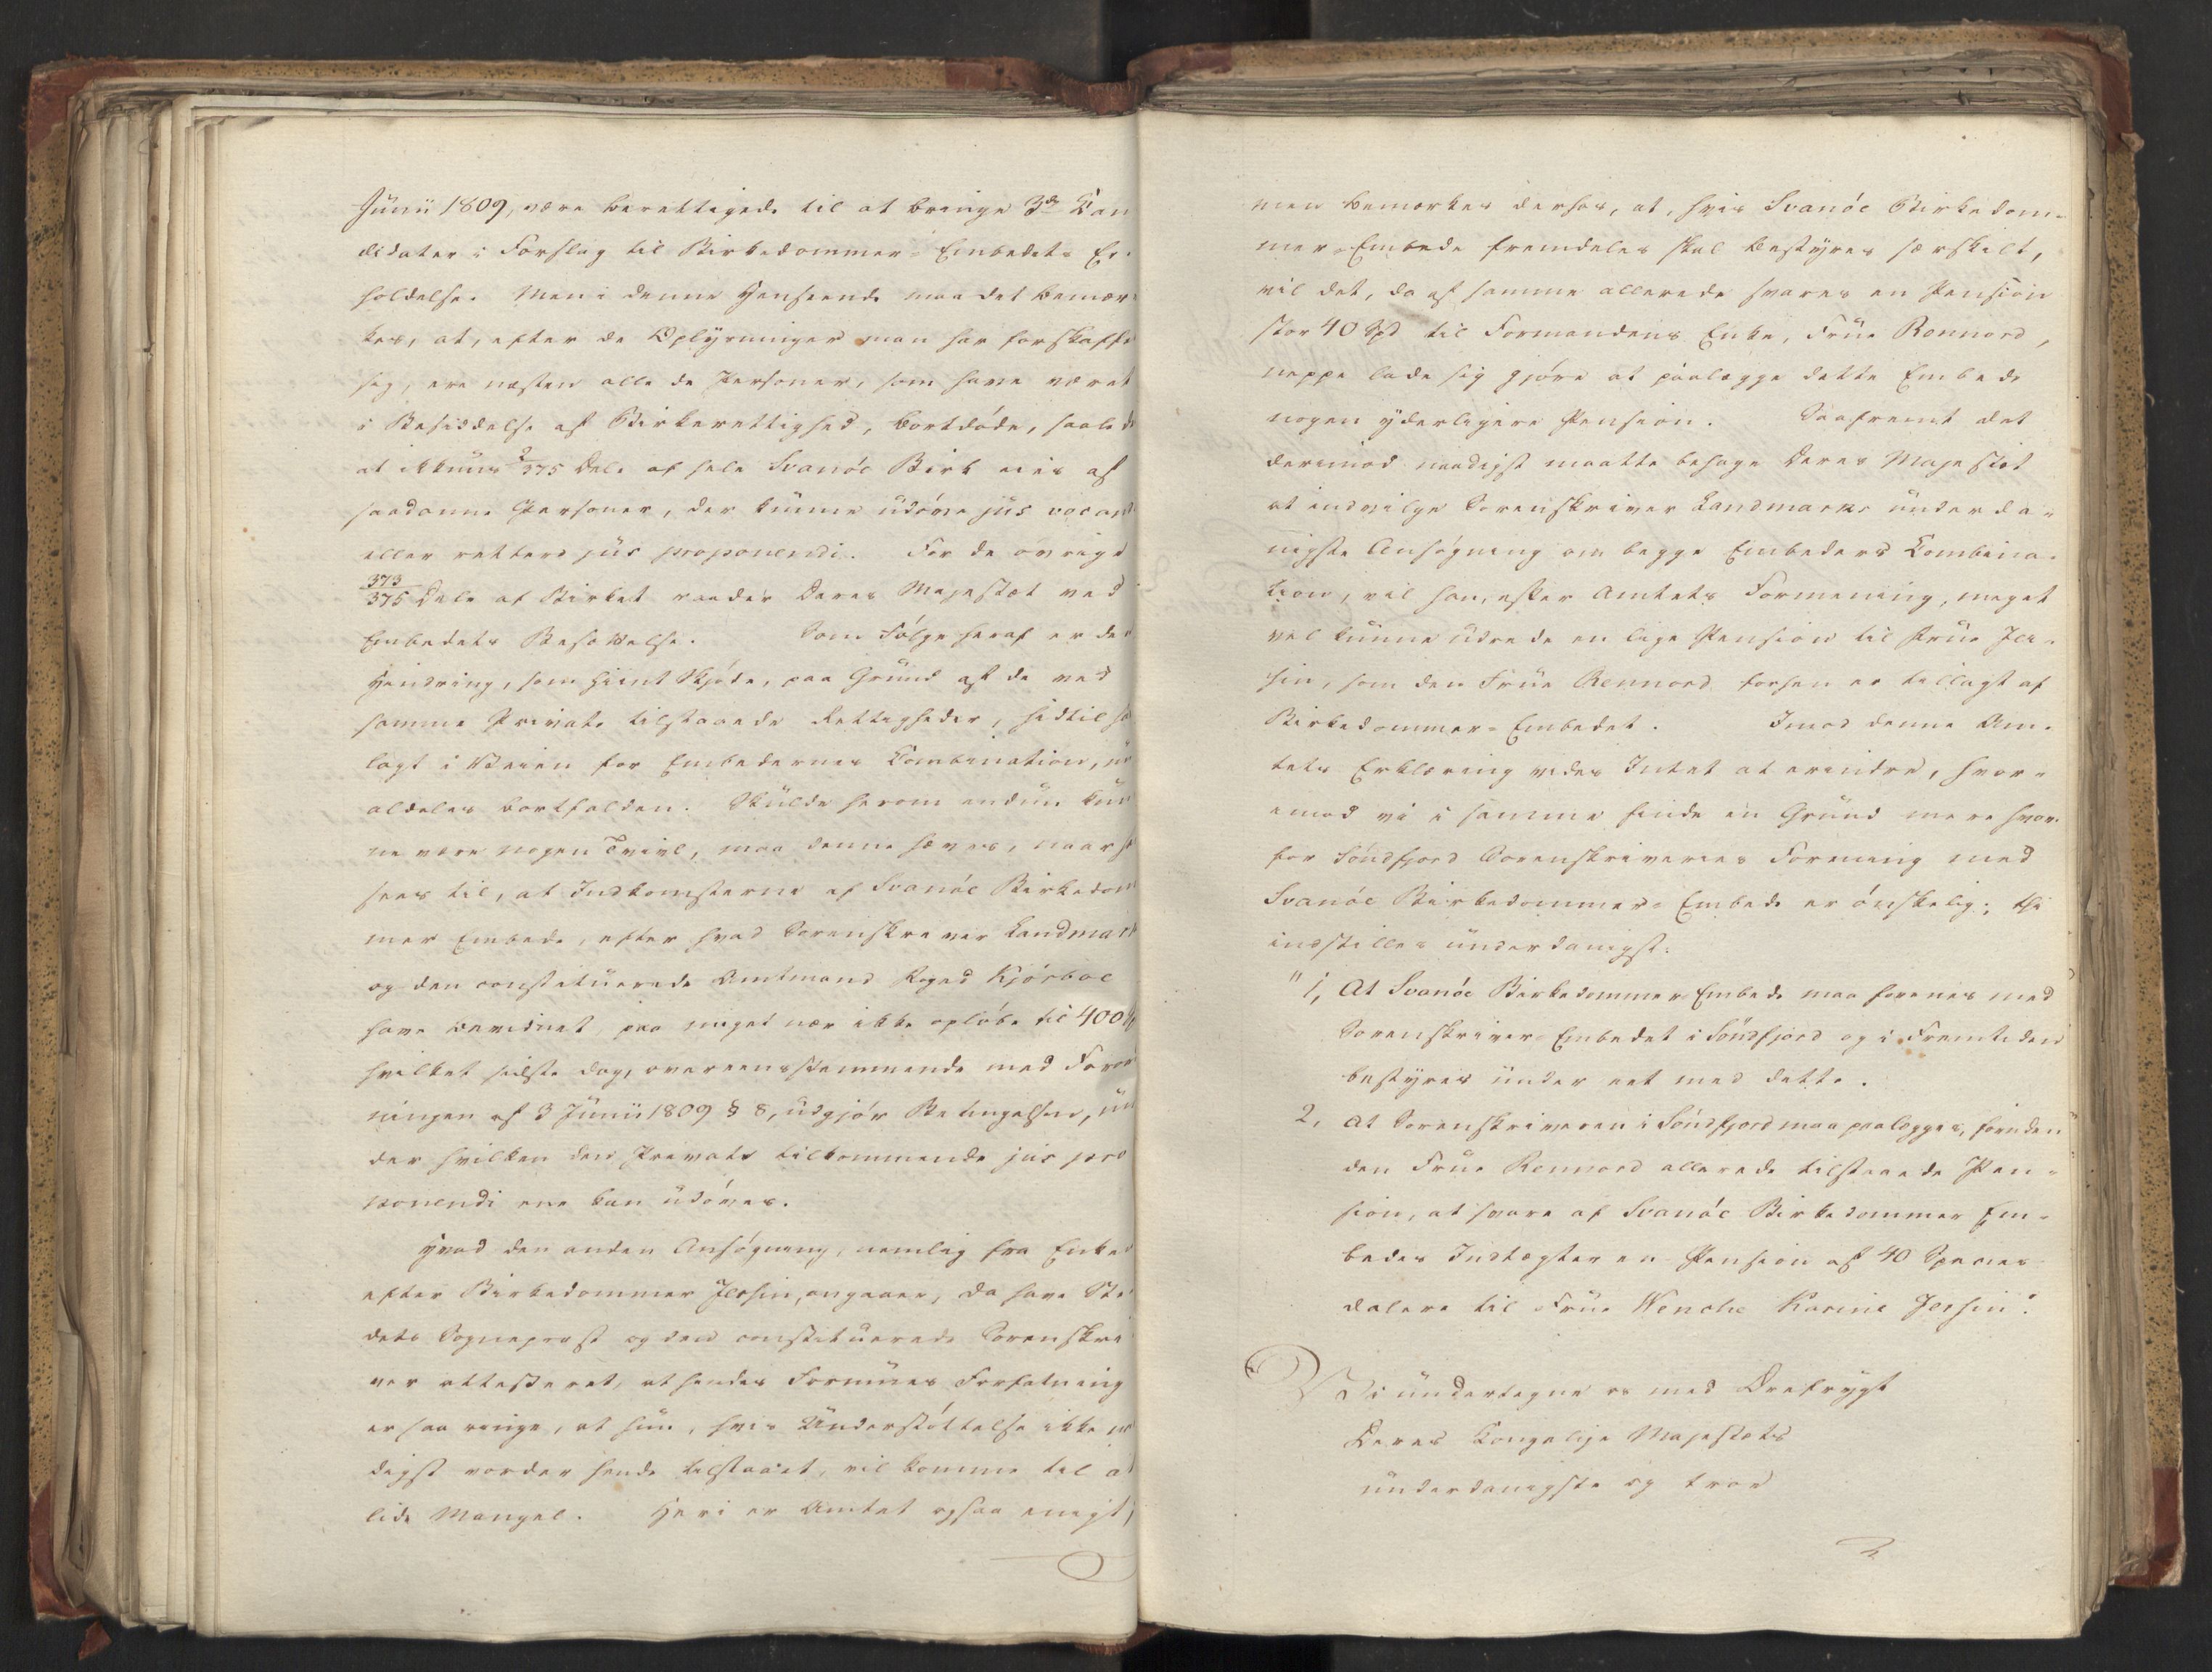 Junii 1809, være berettigede til at bringe 3de Kan
didater i Forslag til Birkedommer-Embedets Er-
holdelse. Men i denne Henseende maa det bemær-
kes, at, efter de Oplysninger man har forskaffe
sig, ere næsten alle de Personer, som have været
i Besiddelse af Birkerettighed, bortdöde, saalede
at ikkuns 2/375 Dele af hele Svanöe Birk eies af
saadanne Personer, der kunne udöve jus vocandi
eller rettere jus proponendi. For de övrige
373/375 Dele af Birket raader Deres Majestæt ved
Embedets Besættelse. Som Fölge heraf er den
Hindring, som hiint Skjöde, paa Grund af de ved
samme Private tilstaaede Rettigheder, hidtil ha
lagt i Veien for Embedernes Combination, nu
aldeles bortfalden. Skulde herom endnu kun
ne være nogen Tvivl, maa denne hæves, naar he
sees til, at Indkomsterne af Svanöe Birkedom
mer Embede, efter hvad Sorenskriver Landmark
og den constituerede Amtmand Foged Kjörboe
have bevidnet, paa meget nær ikke oplöbe til 400
hvilket sidste dog, overeensstemmende med Foror
ningen af 3 Junii 1809 § 8, udgjör Betingelsen, un
der hvilken den Private tilkommende jus pro
ponendi ene kan udöves.
Hvad den anden Ansögning, nemlig fra Enken
efter Birkedommer Jersin, angaaer, da have Ste
dets Sogneprest og den constituerede Sorenskri
ver attesteret, at hendes Formues Forfatning
er saa ringe, at hun, hvis Understöttelse ikke na
digst vorder hende tilstaaet, vil komme til at
lide Mangel. Heri er Amtet ogsaa enigt,
men bemærkes derhos, at, hvis Svanöe Birkedom-
mer-Embede fremdeles skal bestyres særskilt,
vil det, da af samme allerede svares en Pension
stor 40 Spd til Formandens Enke, Frue Rennord,
neppe lade sig gjöre at paalægge dette Embede
nogen yderligere Pension. Saafremt det
derimod naadigst maatte behage Deres Majestæt
at indvilge Sorenskriver Landmarks underda-
nigste Ansögning om begge Embeders Combina-
tion, vil han, efter Amtets Formening, meget
vel kunne udrede en lige Pension til Frue Jer-
sin, som den Frue Rennord forhen er tillagt af
Birkedommer-Embedet. Imod denne Am-
tets Erklæring vides Intet at erindre, hvor-
imod vi i samme finde en Grund mere hvor-
for Söndfjord Sorenskriveries Forening med
Svanöe Birkedommer-Embede er önskelig; thi
indstilles underdanigst:
"1, At Svanöe Birkedommer Embede maa forenes med
Sorenskriver-Embedet i Söndfjord og i Fremtiden
bestyres under eet med dette.
2, At Sorenskriveren i Söndfjord maa paalægges, foruden
den Frue Rennord allerede tilstaaede Pen-
sion, at svare af Svanöe Birkedommer Em-
bedes Indtægter en Pension af 40 Species
dalere til Frue Wenche Karine Jersin".
Vi undertegne os med Ærefrygt
Deres Kongelige Majestæts
underdanigste og troe